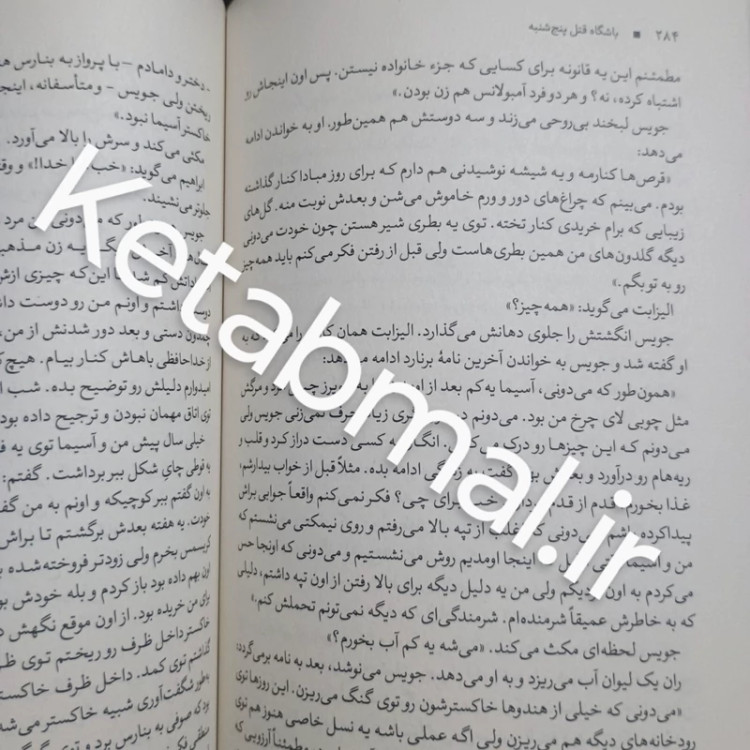 ۲۸۴ ■ باشگاه قتل پنج‌شنبه
مطمئنم این یه قانونه برای کسایی که جزء خانواده نیستن. پس اون اینجاش رو
اشتباه کرده، نه؟ و هر دو فرد آمبولانس هم زن بودن.»
جویس لبخند بی‌روحی می‌زند و سه دوستش هم همین‌طور، او به خواندن ادامه
می‌دهد:
«قرص‌ها کنارمه و یه شیشه نوشیدنی هم دارم که برای روز مبادا کنار گذاشته
بودم. می‌بینم که چراغ‌های دور و ورم خاموش می‌شن و بعدش نوبت منه. گل‌های
زیبایی که برام خریدی کنار تخته. توی یه بطری شیر هستن چون خودت می‌دونی
دیگه گلدون‌های من همین بطری‌هاست ولی قبل از رفتن فکر می‌کنم باید همه‌چیز
رو به تو بگم.»
الیزابت می‌گوید: «همه‌چیز؟»
جویس انگشتش را جلوی دهانش می‌گذارد. الیزابت همان کاری را می که به
او گفته شد و جویس به خواندن آخرین نامهٔ برنارد ادامه می‌دهد:
«همون‌طور که می‌دونی، آسیما یه کم بعد از اون و مرگش
مثل چوبی لای چرخ من بود. می‌دونم در حرف نمی‌زنی جویس ولی
می‌دونم که این چیزها رو درک می‌کنی. به کسی دست دراز کرد و قلب و
ریه‌هام رو درآورد و بعدش گفت به زندگی ادامه بده. مثلاً قبل از خواب بیدار شم،
غذا بخورم، قدم از قدم برای چی؟ فکر نمی‌کنم واقعاً جوابی براش
پیدا کرده باشم. می‌دونی که اغلب از تپه بالا می‌رفتم و روی نیمکتی می‌نشستم که
من و آسیما اینجا اومدیم روش می‌نشستیم و می‌دونی که اونجا حس
می‌کردم به اون نزدیکم ولی من یه دلیل دیگه برای بالا رفتن از اون تپه داشتم، دلیلی
که به خاطرش عمیقاً شرمنده‌ام. شرمندگی‌ای که دیگه نمی‌تونم تحملش کنم.»
جویس لحظه‌ای مکث می‌کند. «می‌شه یه کم آب بخورم؟»
ران یک لیوان آب می‌ریزد و به او می‌دهد. جویس می‌نوشد، بعد به نامه برمی‌گردد:
«می‌دونی که خیلی از هندوها خاکسترشون رو توی گنگ می‌ریزن. این روزها توی
رودخانه‌های دیگه هم می‌ریزن ولی اگه عملی باشه یه نسل خاصی هنوز هم توی
- دختر و دامادم - با پرواز به بنارس
ریختن ولی جویس - و متأسفانه، اینجا
خاکستر آسیما نبود.»
مکثی می‌کند و سرش را بالا می‌آورد.
ابراهیم می‌گوید: «خب خدا!» و
جلوتر می‌نشیند.
که می‌دونی این مرد
یه زن مذهبی
این‌که چیزی ازش
داشتم و اونم من رو دوست
دستی و بعد دور شدنش از من،
از خداحافظی باهاش کنار بیام. هیچ
امیدوارم دلیلش رو توضیح بده. شب
توی اتاق مهمان نبودن و ترجیح داده بود
خیلی سال پیش من و آسیما توی یه
یه قوطی چای شکل ببر برداشت. گفتم:
به اون گفتم ببر کوچیکه و اونم به من
خودت. یه هفته بعدش برگشتم تا براش
کریسمس بخرم ولی زودتر فروخته شده
اون بهم داده بود باز کردم و بله خودش
برای من خریده بود. از اون موقع نگهش
خاکستر داخل ظرف رو ریختم توی
گذاشتم توی کمد. داخل ظرف خاکستر
به‌طور شگفت‌آوری شبیه خاکستر می‌شد
که صوفی به بنارس برد و توی
Ketabmal.ir